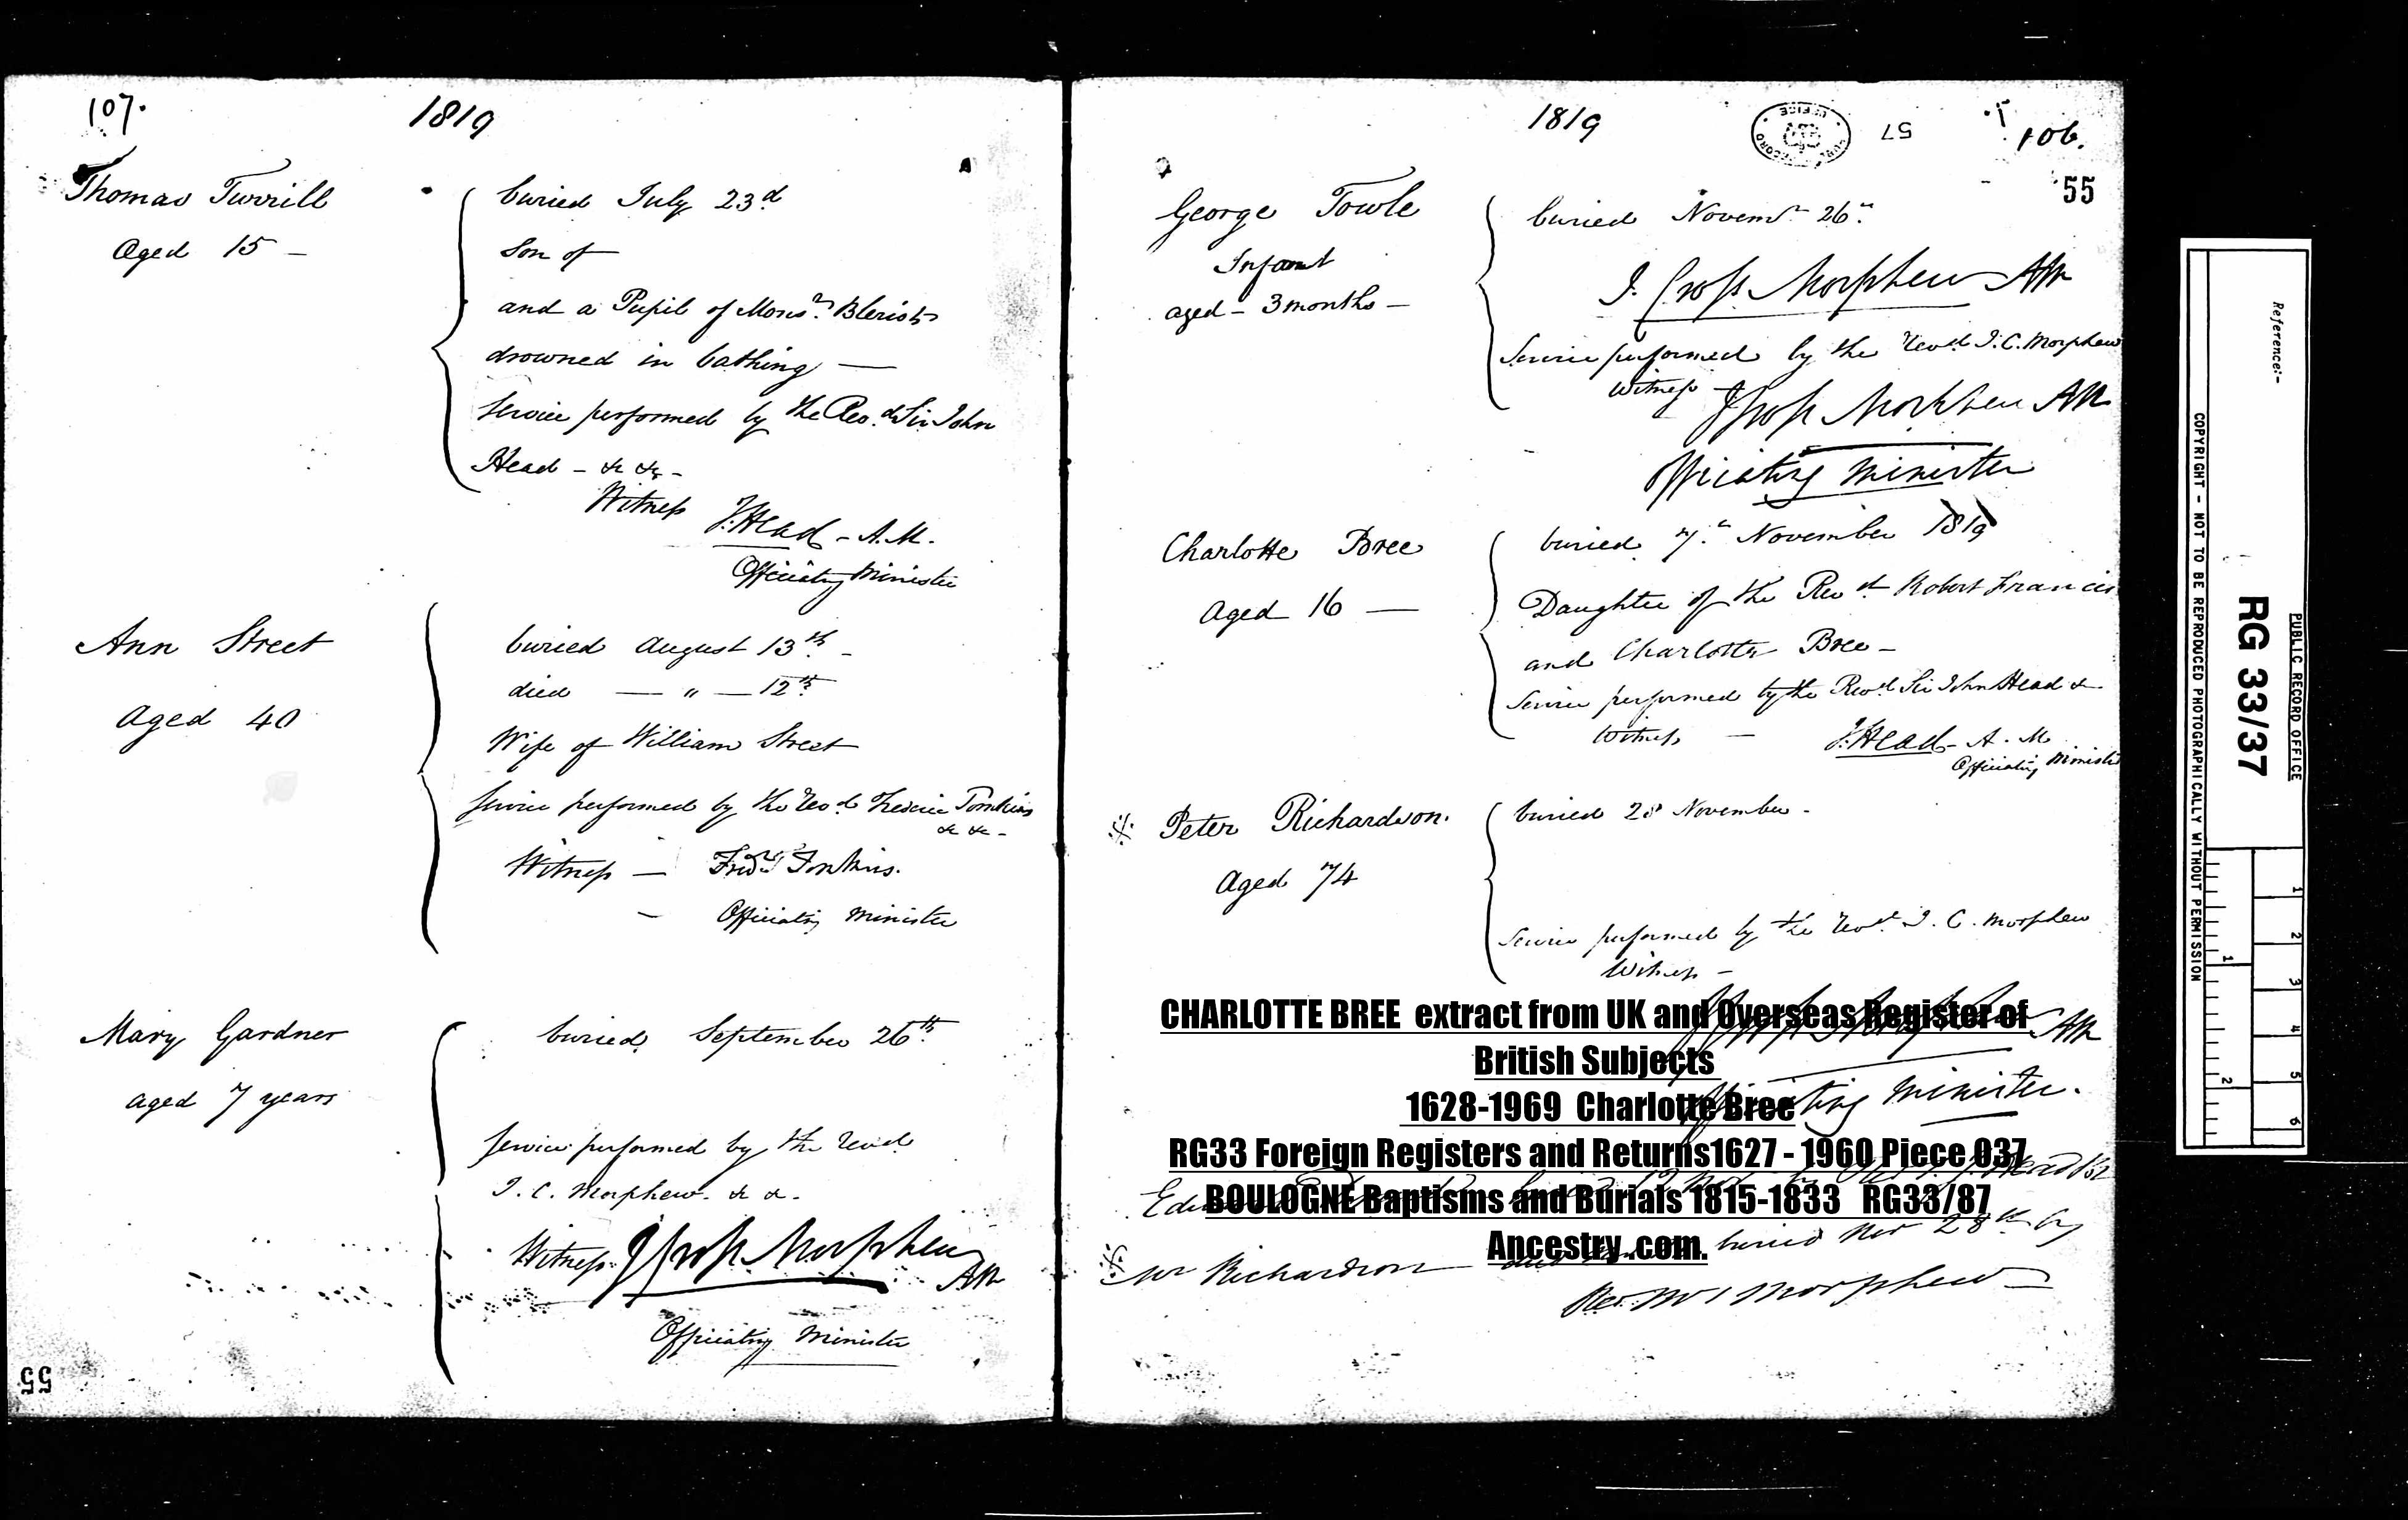 107.
1819
Thomas Turrill
Aged 15 -
buried July 23d
Son of
and a Pupil of Monsr. Bleriots
drowned in bathing —
Service performed by the Revd. Sir John
Head - &c &c -
Witness
J. Head - A.M.
Officiating Minister
Ann Street
Aged 40
buried August 13th -
died — " — 12th
Wife of William Street
Service performed by the Revd Frederic Tomkins
&c &c -
Witness — Fredk Tomkins.
- Officiating Minister
Mary Gardner
aged 7 years
buried September 26th
Service performed by the Revd
J. C. Morphew. & &.
Witness. J Cross Morphew
AM
Officiating Minister
55
1819
57
106.
55
George Towle
Infant
aged - 3 months -
buried Novemr 26th
J. Cross Morphew AM
Service performed by the Revd J. C. Morphew
Witness - J Cross Morphew AM
Officiating Minister
Charlotte Bree
Aged 16 —
buried 7th November 1819
Daughter of the Revd Robert Francis
and Charlotte Bree -
Service performed by the Revd Sir John Head &
Witness - J. Head - A.M.
Officiating Minister
Peter Richardson.
Aged 74
buried 28 November -
Service performed by the Revd J. C. Morphew
Witness -
AM
Officiating Minister.
CHARLOTTE BREE extract from UK and Overseas Register of
British Subjects
1628-1969 Charlotte Bree
RG33 Foreign Registers and Returns1627 - 1960 Piece 037
BOULOGNE Baptisms and Burials 1815-1833 RG33/87
Ancestry .com.
Mr Richardson buried Nov 28th by
Rev. Mr Morphew
Reference:-
PUBLIC RECORD OFFICE
RG 33/37
COPYRIGHT - NOT TO BE REPRODUCED PHOTOGRAPHICALLY WITHOUT PERMISSION
1 2 3 4 5 6
1 2